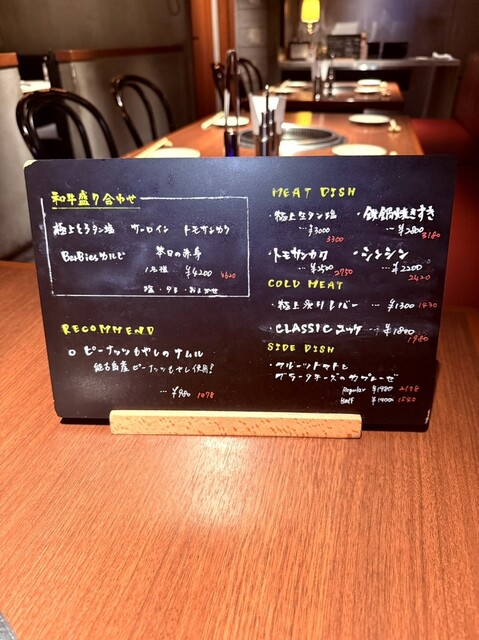 和牛盛り合わせ
極上とろタン塩 サーロイン トモサンカク
BeBiesカルビ 本日の赤身
1名様 ¥4200 4620
塩・タレ・おまかせ
RECOMMEND
ピーナッツもやしのナムル
ピーナッツもやし使用!
… ¥980 1078
MEAT DISH
・極上生タン塩
… ¥3000
3300
・鉄鍋焼きすき
… ¥2800
・トモサンカク
… ¥2500 2750
・シンシン
… ¥2200
2420
COLD MEAT
・極上炙りレバー … ¥1300 1430
・CLASSIC ユッケ … ¥1800
1980
SIDE DISH
・フルーツトマトと
ブラータチーズのカプレーゼ
Regular ¥1980 2178
Half